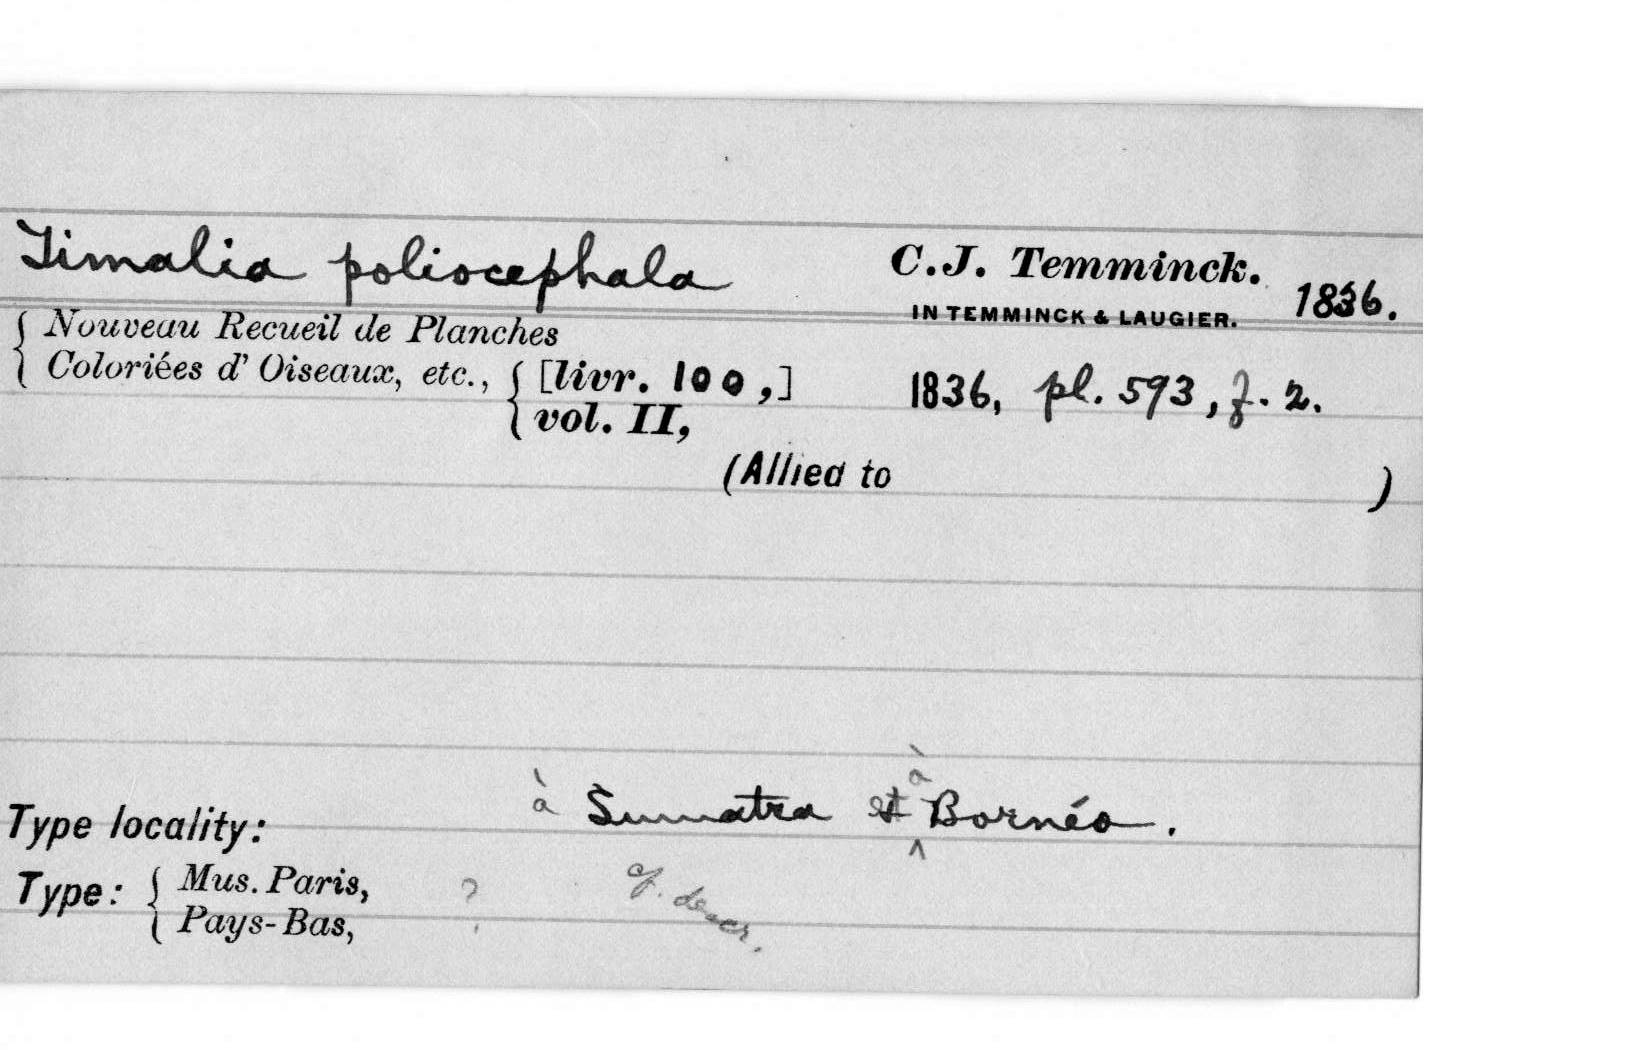 Timalia poliocephala C.J. Temminck. 1836.
IN TEMMINCK & LAUGIER.
{ Nouveau Recueil de Planches
Coloriées d' Oiseaux, etc., { [livr. 100,] 1836, pl. 593, f. 2.
vol. II,
(Allied to )
à Sumatra et à Bornéo.
Type locality:
Type: { Mus. Paris, ? cf. descr.
Pays-Bas,